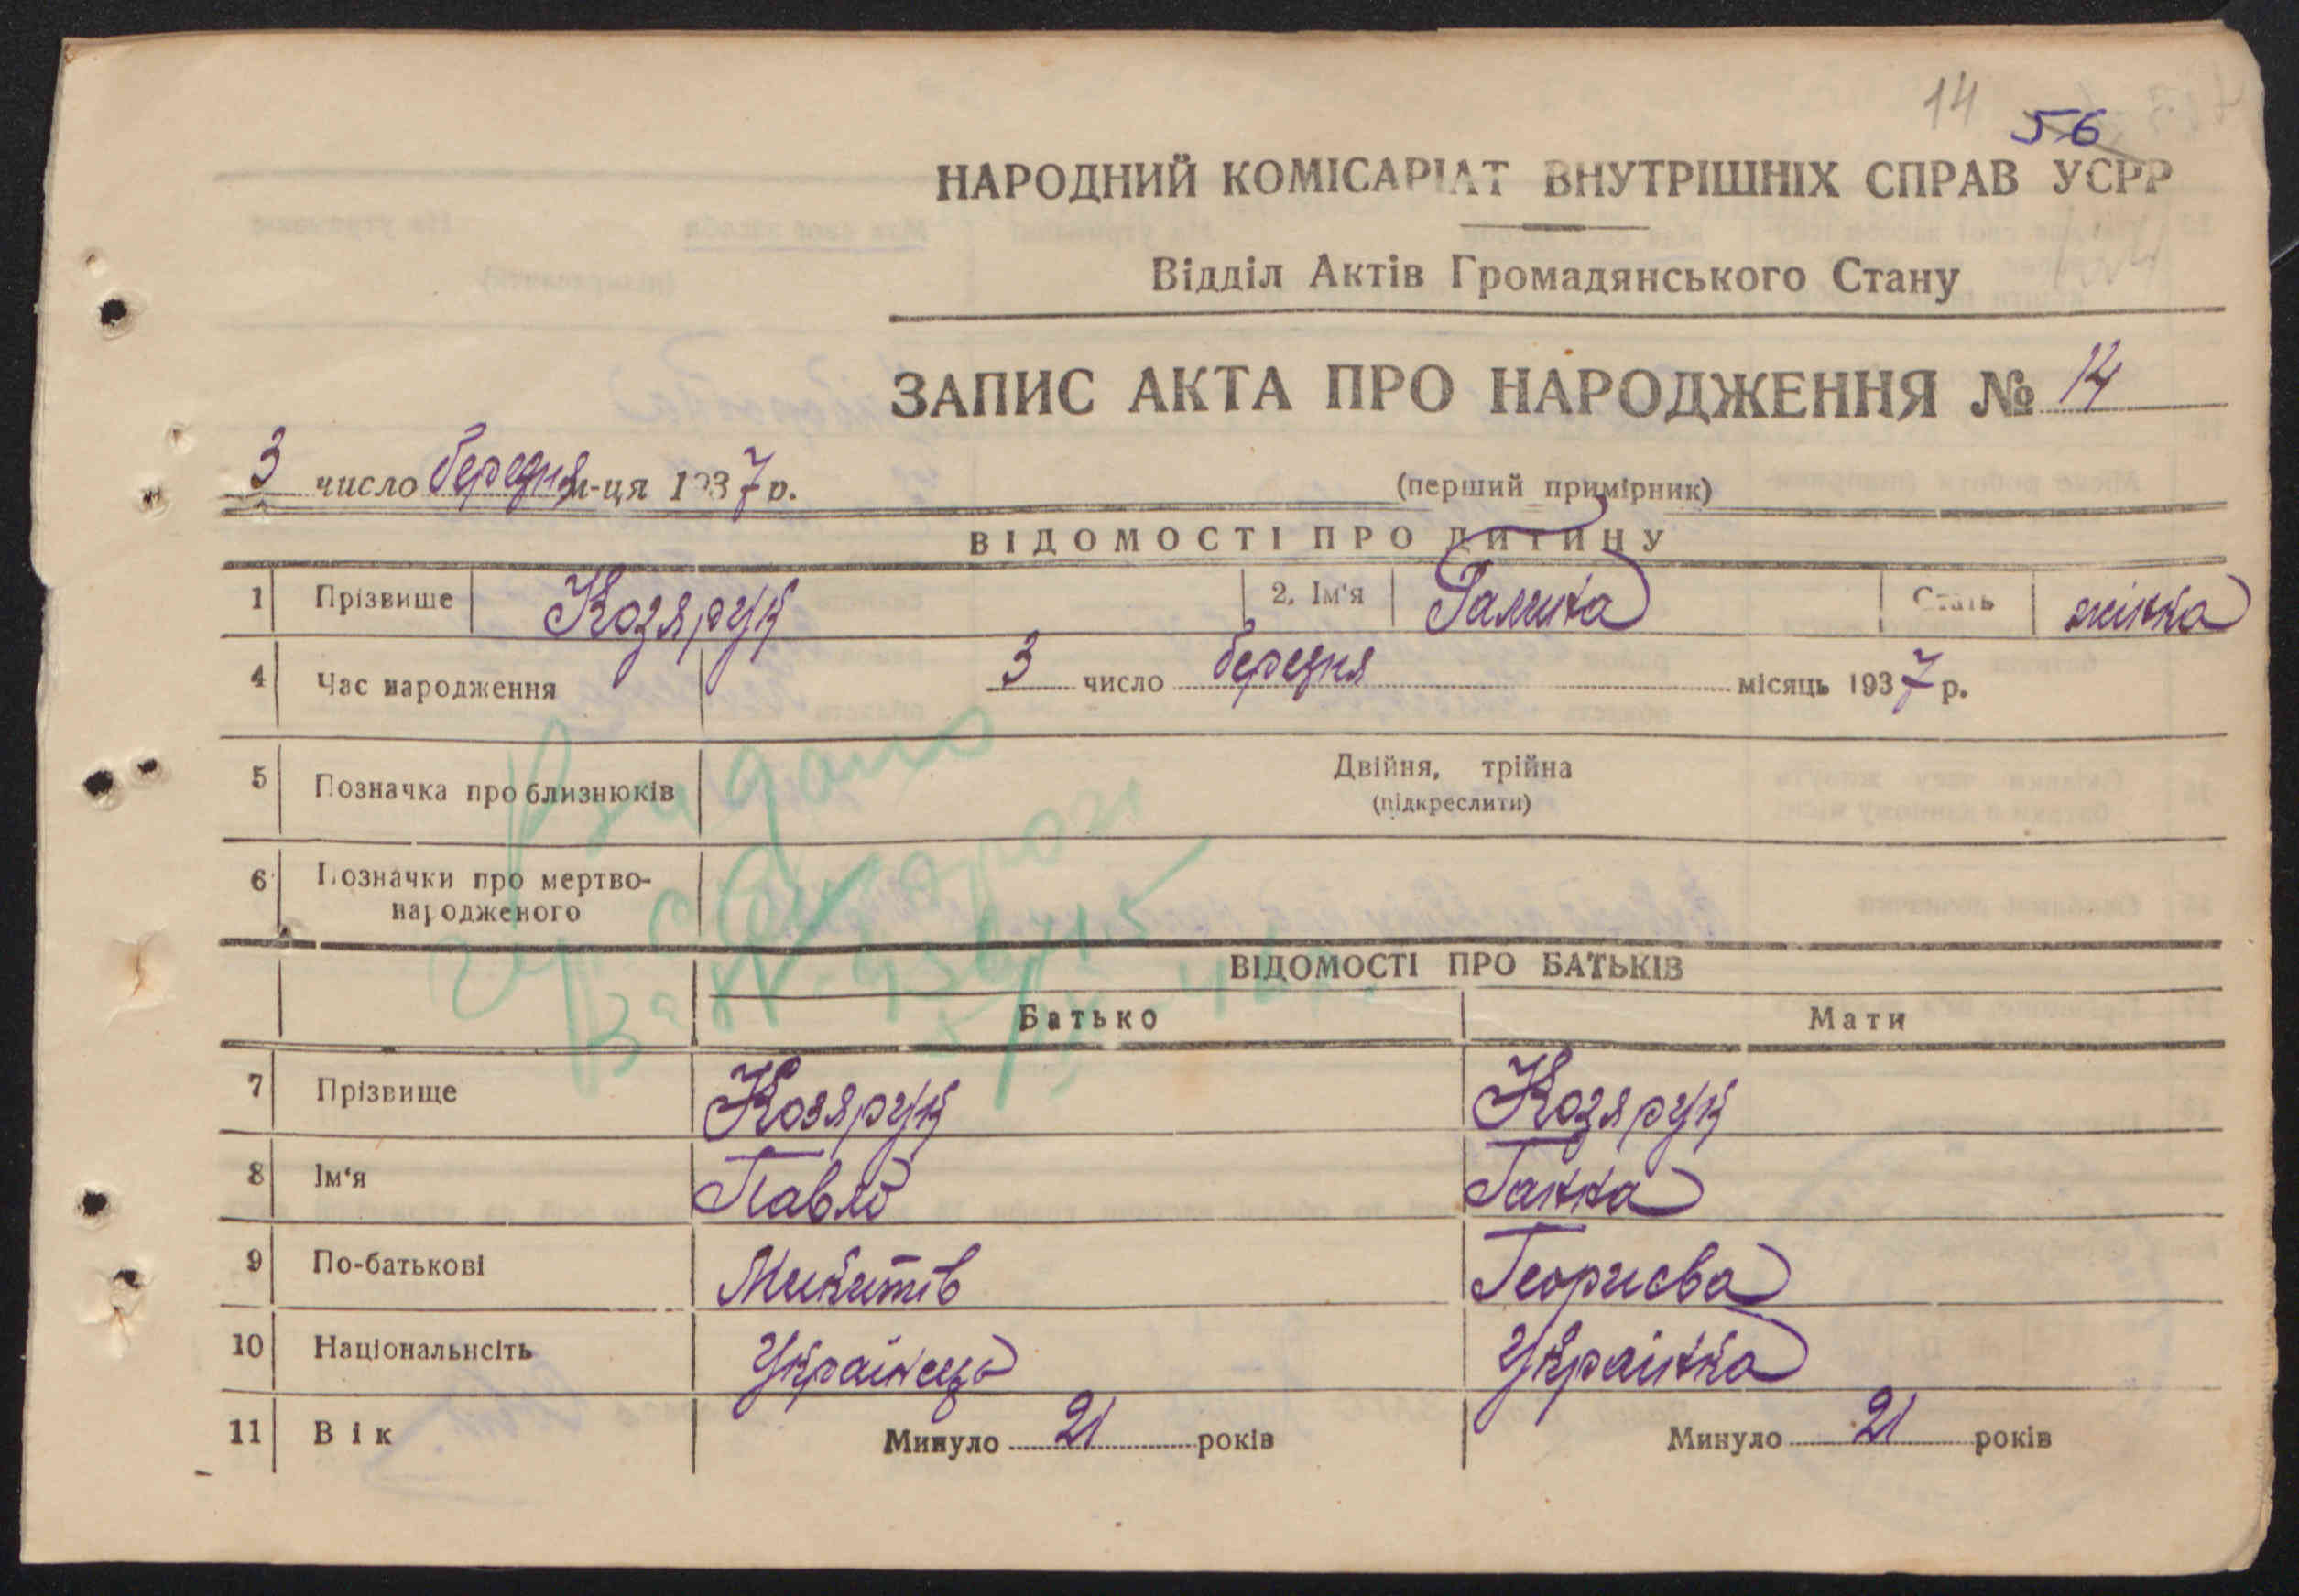 14
56
НАРОДНИЙ КОМІСАРІАТ ВНУТРІШНІХ СПРАВ УСРР
Відділ Актів Громадянського Стану
ЗАПИС АКТА ПРО НАРОДЖЕННЯ № 14
3 число березня м-ця 1937 р.
(перший примірник)
ВІДОМОСТІ ПРО ДИТИНУ
1 Прізвище Козярук 2. Ім'я Галина Стать жінка
4 Час народження 3 число березня місяць 1937 р.
5 Позначка про близнюків Двійня, трійна
(підкреслити)
6 Позначки про мертво-
народженого
Видано
ВІДОМОСТІ ПРО БАТЬКІВ
Батько Мати
7 Прізвище Козярук Козярук
8 Ім'я Павло Ганна
9 По-батькові Микитів Георгиєва
10 Національнсіть Українець Українка
11 Вік Минуло 21 років Минуло 21 років